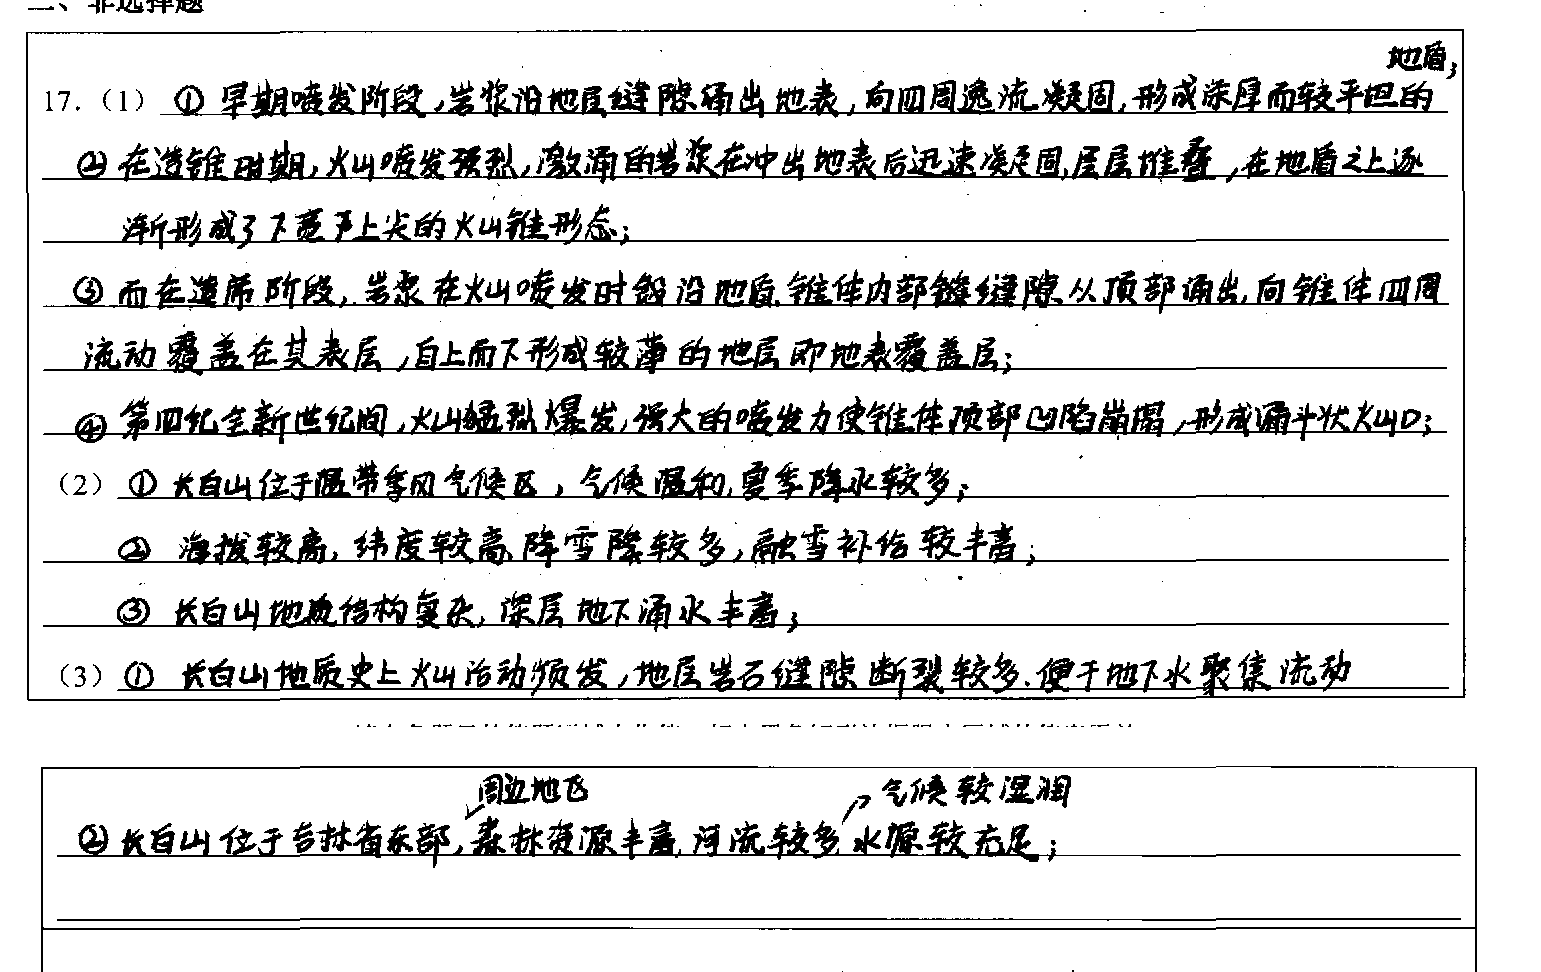 二、非选择题
地盾;
17.（1）① 早期喷发阶段,岩浆沿地层缝隙涌出地表,向四周逸流凝固,形成深厚而较平坦的
② 在造锥时期,火山喷发强烈,激涌的岩浆在冲出地表后迅速凝固,层层堆叠,在地盾之上逐
渐形成了下宽上尖的火山锥形态;
③ 而在造席阶段,岩浆在火山喷发时沿地盾、锥体内部缝隙从顶部涌出,向锥体四周
流动覆盖在其表层,自上而下形成较薄的地层即地表覆盖层;
④ 第四纪全新世纪间,火山猛烈爆发,强大的喷发力使锥体顶部凹陷崩塌,形成漏斗状火山口;
（2）① 长白山位于温带季风气候区,气候温和,夏季降水较多;
② 海拔较高,纬度较高,降雪较多,融雪补给较丰富;
③ 长白山地质结构复杂,深层地下涌水丰富;
（3）① 长白山地质史上火山活动频发,地层岩石缝隙断裂较多.便于地下水聚集流动
周边地区 气候较湿润
② 长白山位于吉林省东部,森林资源丰富,河流较多,水源较充足;